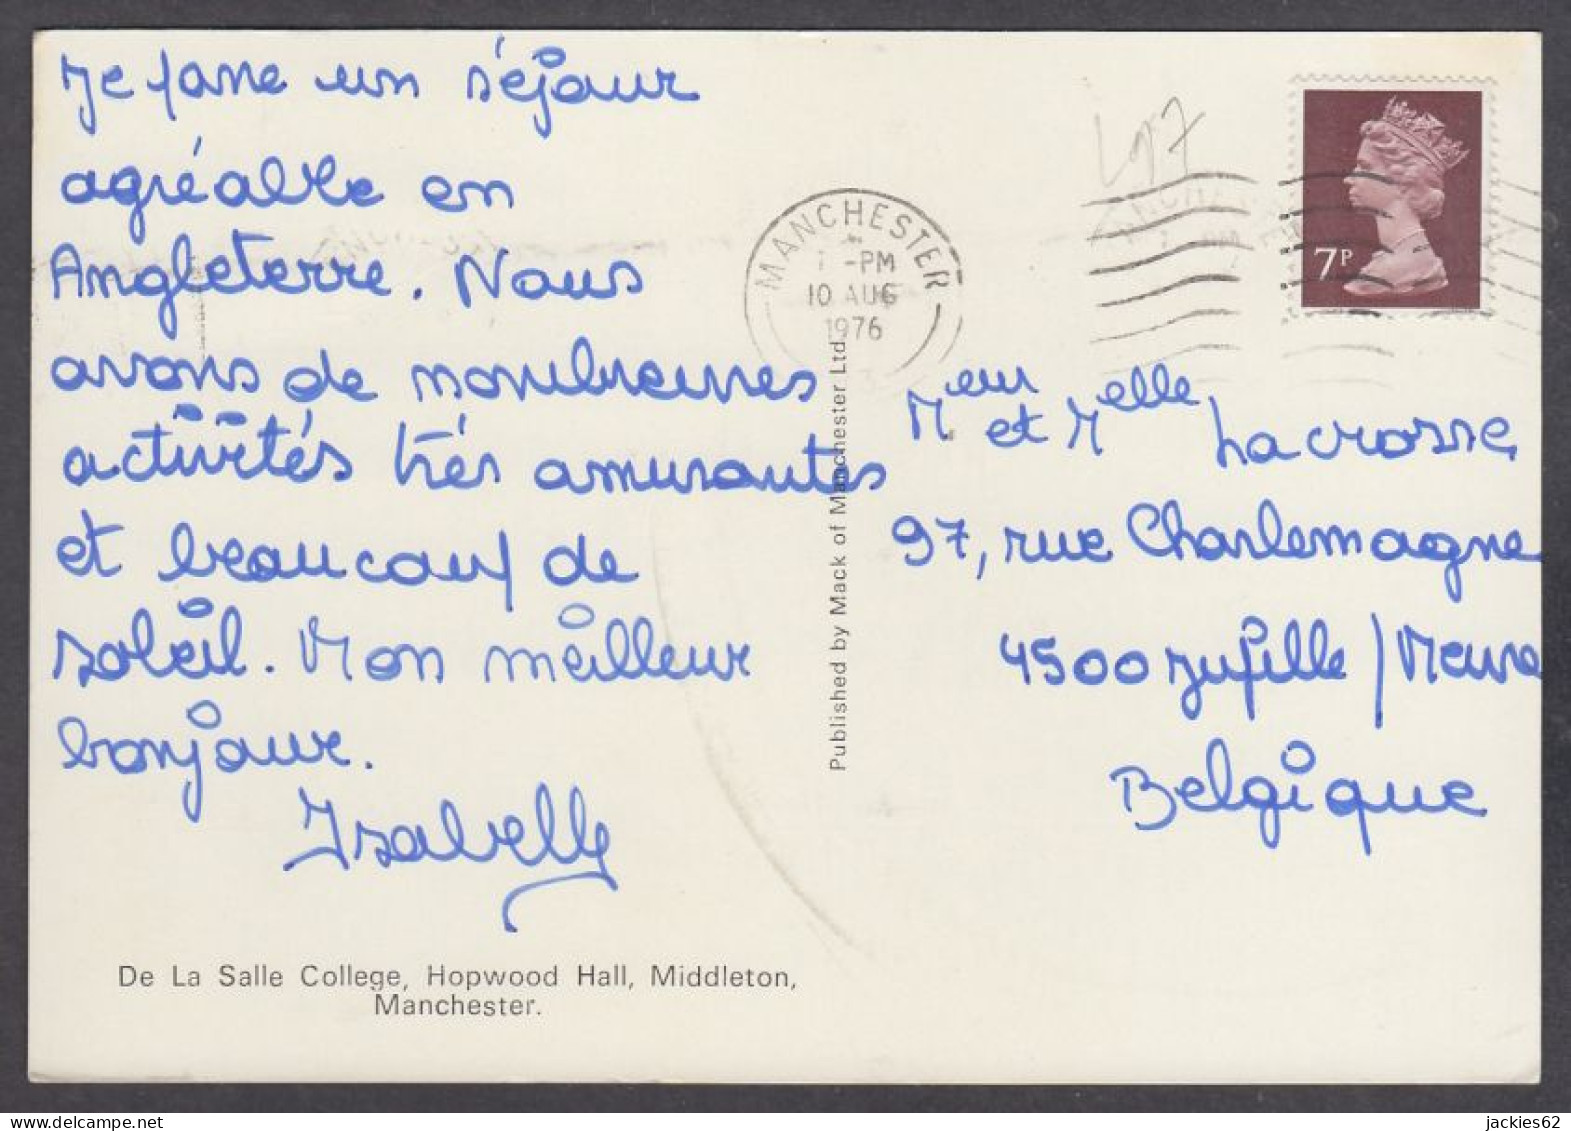 Je passe un séjour
agréable en
Angleterre. Nous
avons de nombreuses
activités très amusantes
et beaucoup de
soleil. Mon meilleur
bonjour.
Isabelle
De La Salle College, Hopwood Hall, Middleton,
Manchester.
Published by Mack of Manchester Ltd.
MANCHESTER
-PM
10 AUG
1976
7P
Meur et Melle Lacrosse
97, rue Charlemagne
4500 Jupille / Meuse
Belgique
jackies62
delcampe.net